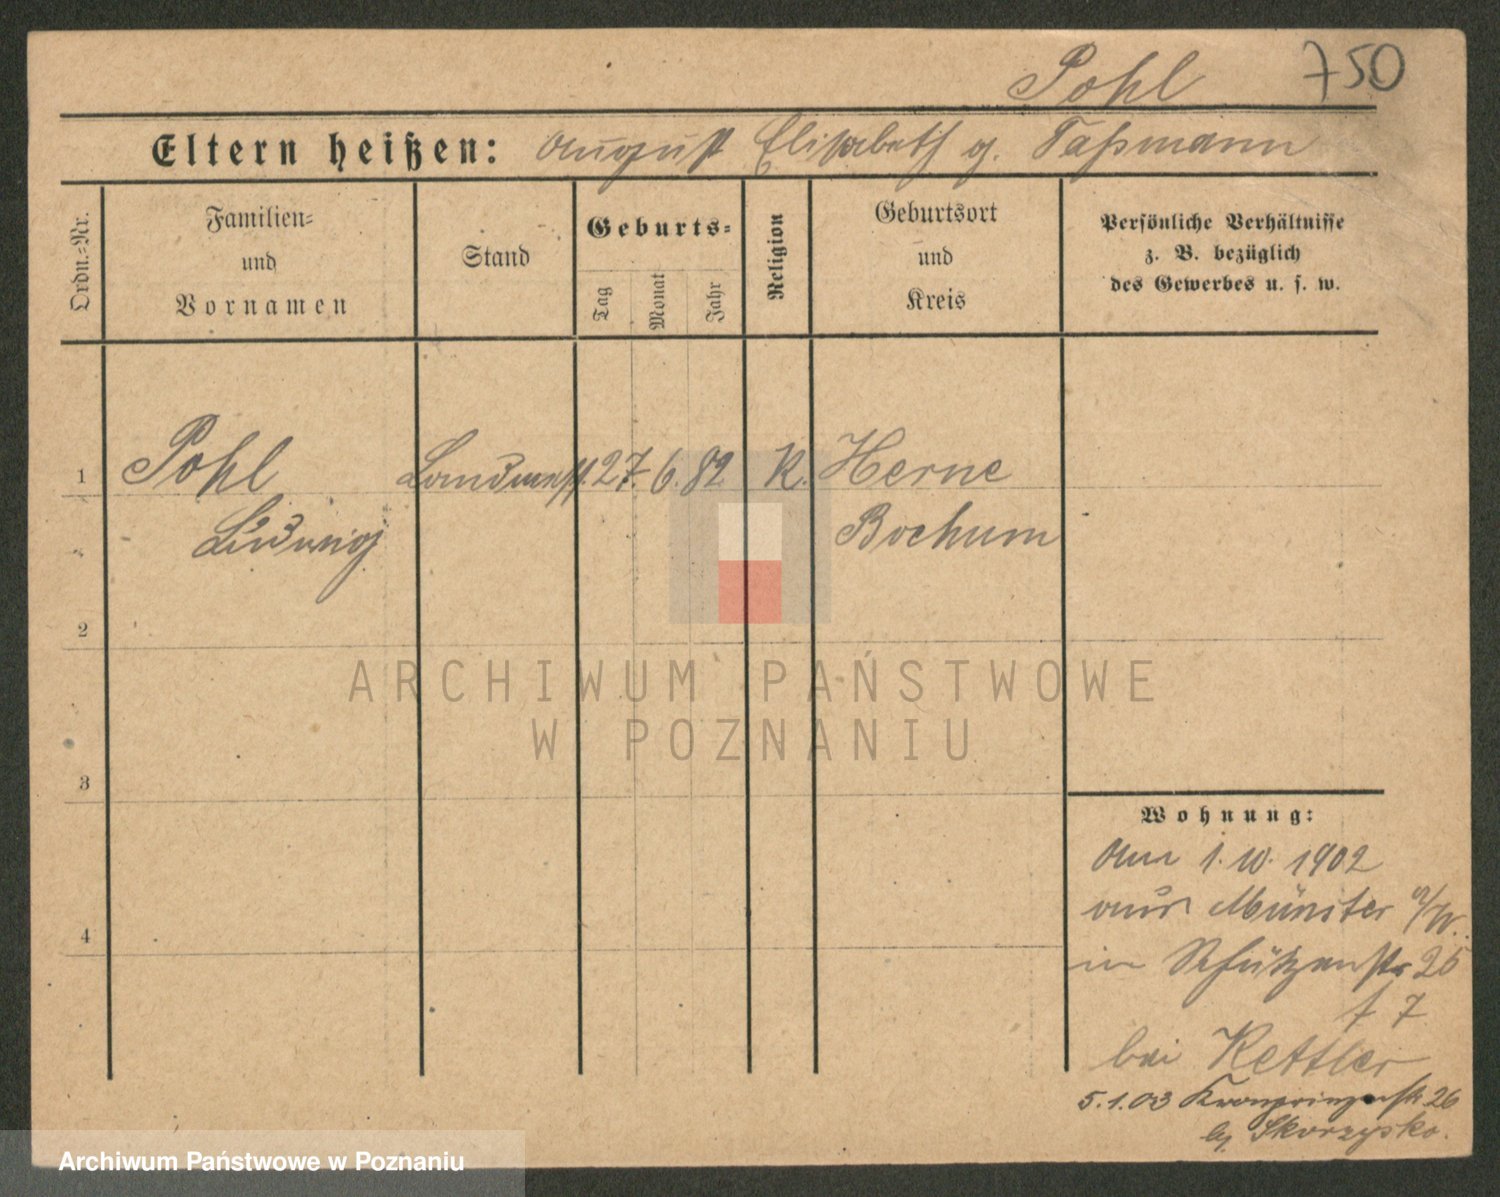 Pohl 750
Eltern heißen: August Elisabeth g. Taßmann
Ordn.-Nr.
Familien-
und
Vornamen
Stand
Geburts-
Tag
Monat
Jahr
Religion
Geburtsort
und
Kreis
Persönliche Verhältnisse
z. B. bezüglich
des Gewerbes u. s. w.
1 Pohl Landmess. 27. 6. 82 K. Herne
Ludwig Bochum
2
ARCHIWUM PAŃSTWOWE
W POZNANIU
3
Wohnung:
Am 1. 10. 1902
aus Münster i/W.
in Schützenstr 26
7
4
bei Kettler
5.1.03 Kronprinzenstr 26
bei Skorzysko.
Archiwum Państwowe w Poznaniu